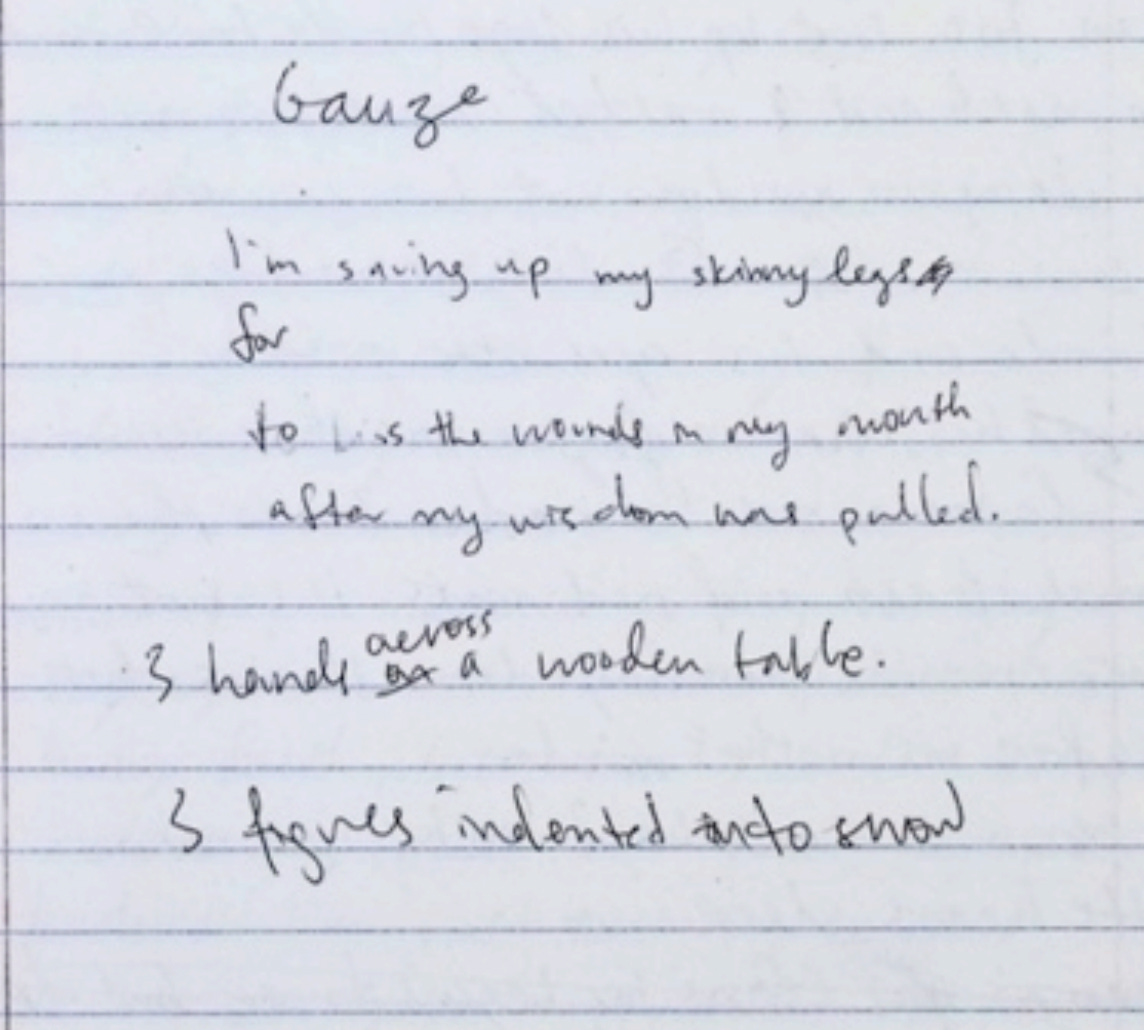 Gauze
I'm saving up my skinny legs
for
to the wounds in my mouth
after my wisdom was pulled.
3 hands across a wooden table.
3 figures indented into snow